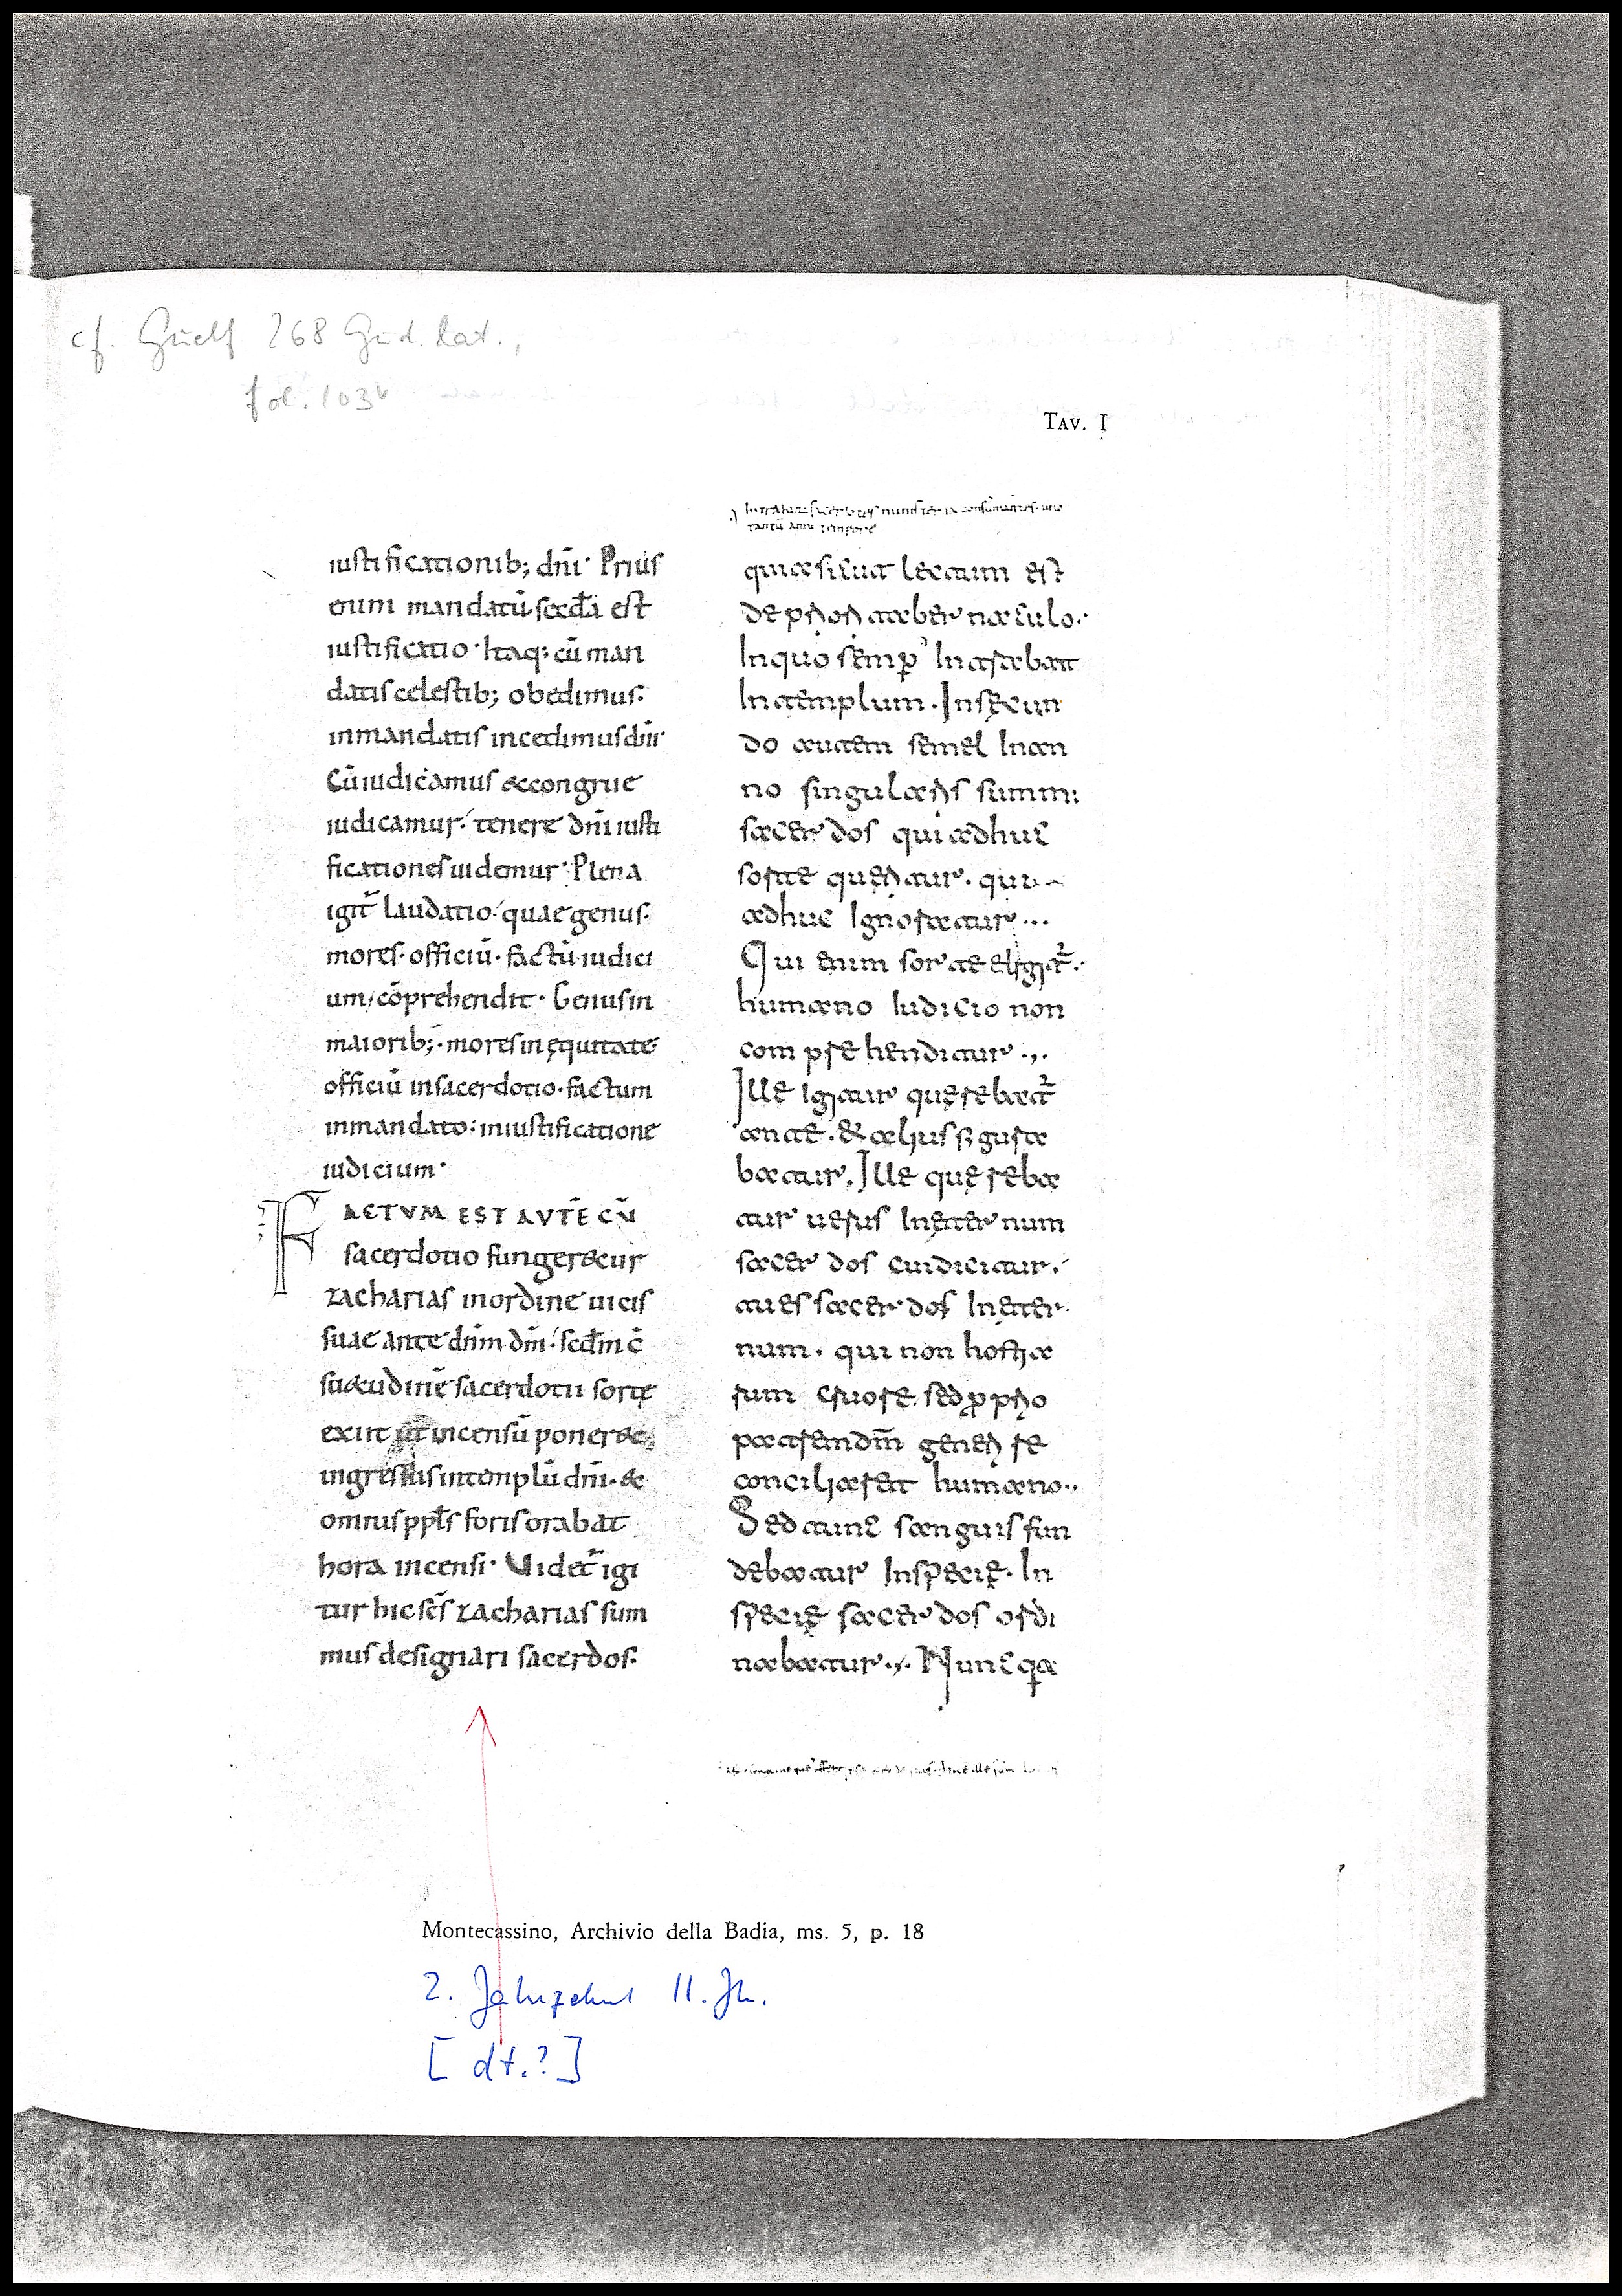 cf. Guelf 268 Gud. lat.,
fol. 103v
TAV. I
iustificationib; dn̄i· Prius
enim mandatū· sec̄da est
iustificatio· Itaq; cū man
datis celestib; obedimus·
in mandatis incedimus dn̄i·
Cū iudicamus & congrue
iudicamur· tenere dn̄i iusti
ficationes uidemur· Plena
igit̄ laudatio· quae genus·
mores· officiū· factū· iudici
um, cōprehendit· Genus in
maiorib;· mores in ęquitate
officiū in sacerdotio· factum
in mandato· in iustificatione
iudicium·
FACTVM EST AVTĒ CŪ
sacerdotio fungeretur
zacharias in ordine uicis
suae ante dn̄m dn̄i· sec̄dm c̄
suetudinē sacerdotii sorte
exiit ut incensū poneret
ingressus in templū dn̄i· &
omnis ppl̄s foris orabat
hora incensi· Videt̄ igi
tur hic sc̄s zacharias sum
mus designari sacerdos·
quia sicut lectum est
de priori tabernaculo·
In quo semp̱ Intrabant
In templum· In secun
do autem semel In an
no singularis summ;
sacerdos qui adhuc
sorte queritur· qui
adhuc Ignoratur···
Qui enim sorte eligit̄·
humano Iudicio non
comprehenditur·,·
Ille Igitur querebat̄
ante· & alius figura
batur· Ille quereba
tur uerus In eternum
sacerdos cui dicitur·
tu es sacerdos In eter
num· qui non hostia
rum cruore sed ꝓprio
patrem dm̄ generi re
conciliaret humano··
Sed tunc sanguis fun
debatur In specie· In
specie sacerdos ordi
nabatur·,· Nunc qa
Montecassino, Archivio della Badia, ms. 5, p. 18
2. Jahrzehnt 11. Jh.
[dt.?]